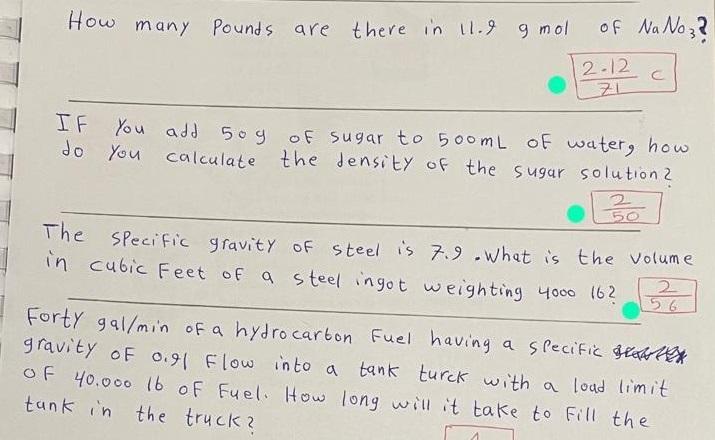 How many Pounds are there in 11.9 g mol of NaNo3?
2.12 c
71
IF You add 50g of sugar to 500mL of water, how
do You calculate the density of the sugar solution?
2
50
The specific gravity of steel is 7.9. What is the volume
in cubic Feet of a steel ingot weighting 4000 lb?
2
56
Forty gal/min of a hydrocarbon Fuel having a specific
gravity of 0.91 Flow into a tank turck with a load limit
of 40.000 lb of Fuel. How long will it take to Fill the
tank in the truck?